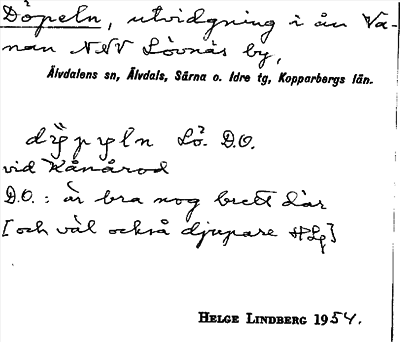 Döpeln, utvidgning i ån Va-
nan NNV Lövnäs by,
Älvdalens sn, Älvdals, Särna o. Idre tg, Kopparbergs län.
dỳpyln Lö. D.O.
vid Kånårod
D.O.: är bra nog brett där
[och väl också djupare HLg]
HELGE LINDBERG 1954.